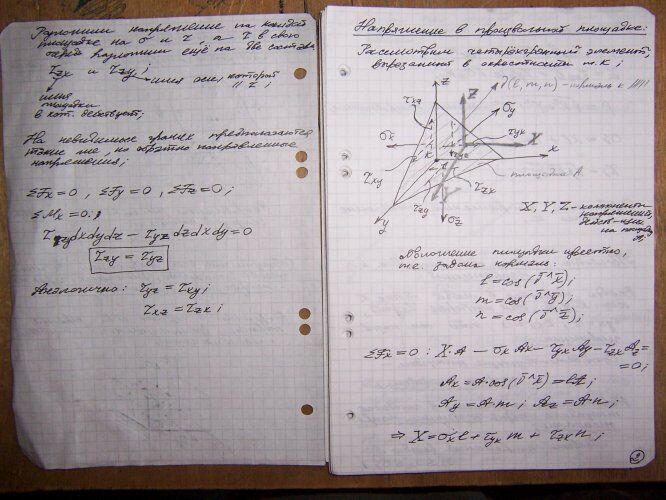 Разложим напряжение на каждой
площадке на σ и τ, а τ в свою
очередь разложим ещё на две составл.
τzx и τzy;
имя оси, которой
|| z;
имя
площадки
в кот. действует;
На невидимых гранях предполагаются
такие же, но обратно направленные
напряжения;
ΣFx = 0, ΣFy = 0, ΣFz = 0;
ΣMx = 0:
dxdydz − τyz dzdxdy = 0
τzy = τyz
Аналогично: τyx = τxy;
τxz = τzx;
Напряжение в произвольной площадке:
Рассмотрим четырёхгранный элемент,
вырезанный в окрестности т. K;
z
Z
ν̄(l, m, n) – нормаль к
τxz
σy
σx
τyx
X
K
τyz
x
τxy
площадка A
τzx
y
τzy
σz
X, Y, Z – компоненты
напряжений,
действ-щие
на площ.
Положение площадки известно,
т.е. задана нормаль:
l = cos(ν̄^x̄);
m = cos(ν̄^ȳ);
n = cos(ν̄^z̄);
ΣFx = 0 : X·A − σx Ax − τyx Ay − τzx Az =
= 0;
Ax = A·cos(ν̄^x̄) = lA;
Ay = A·m; Az = A·n;
⇒ X = σx l + τyx m + τzx n;